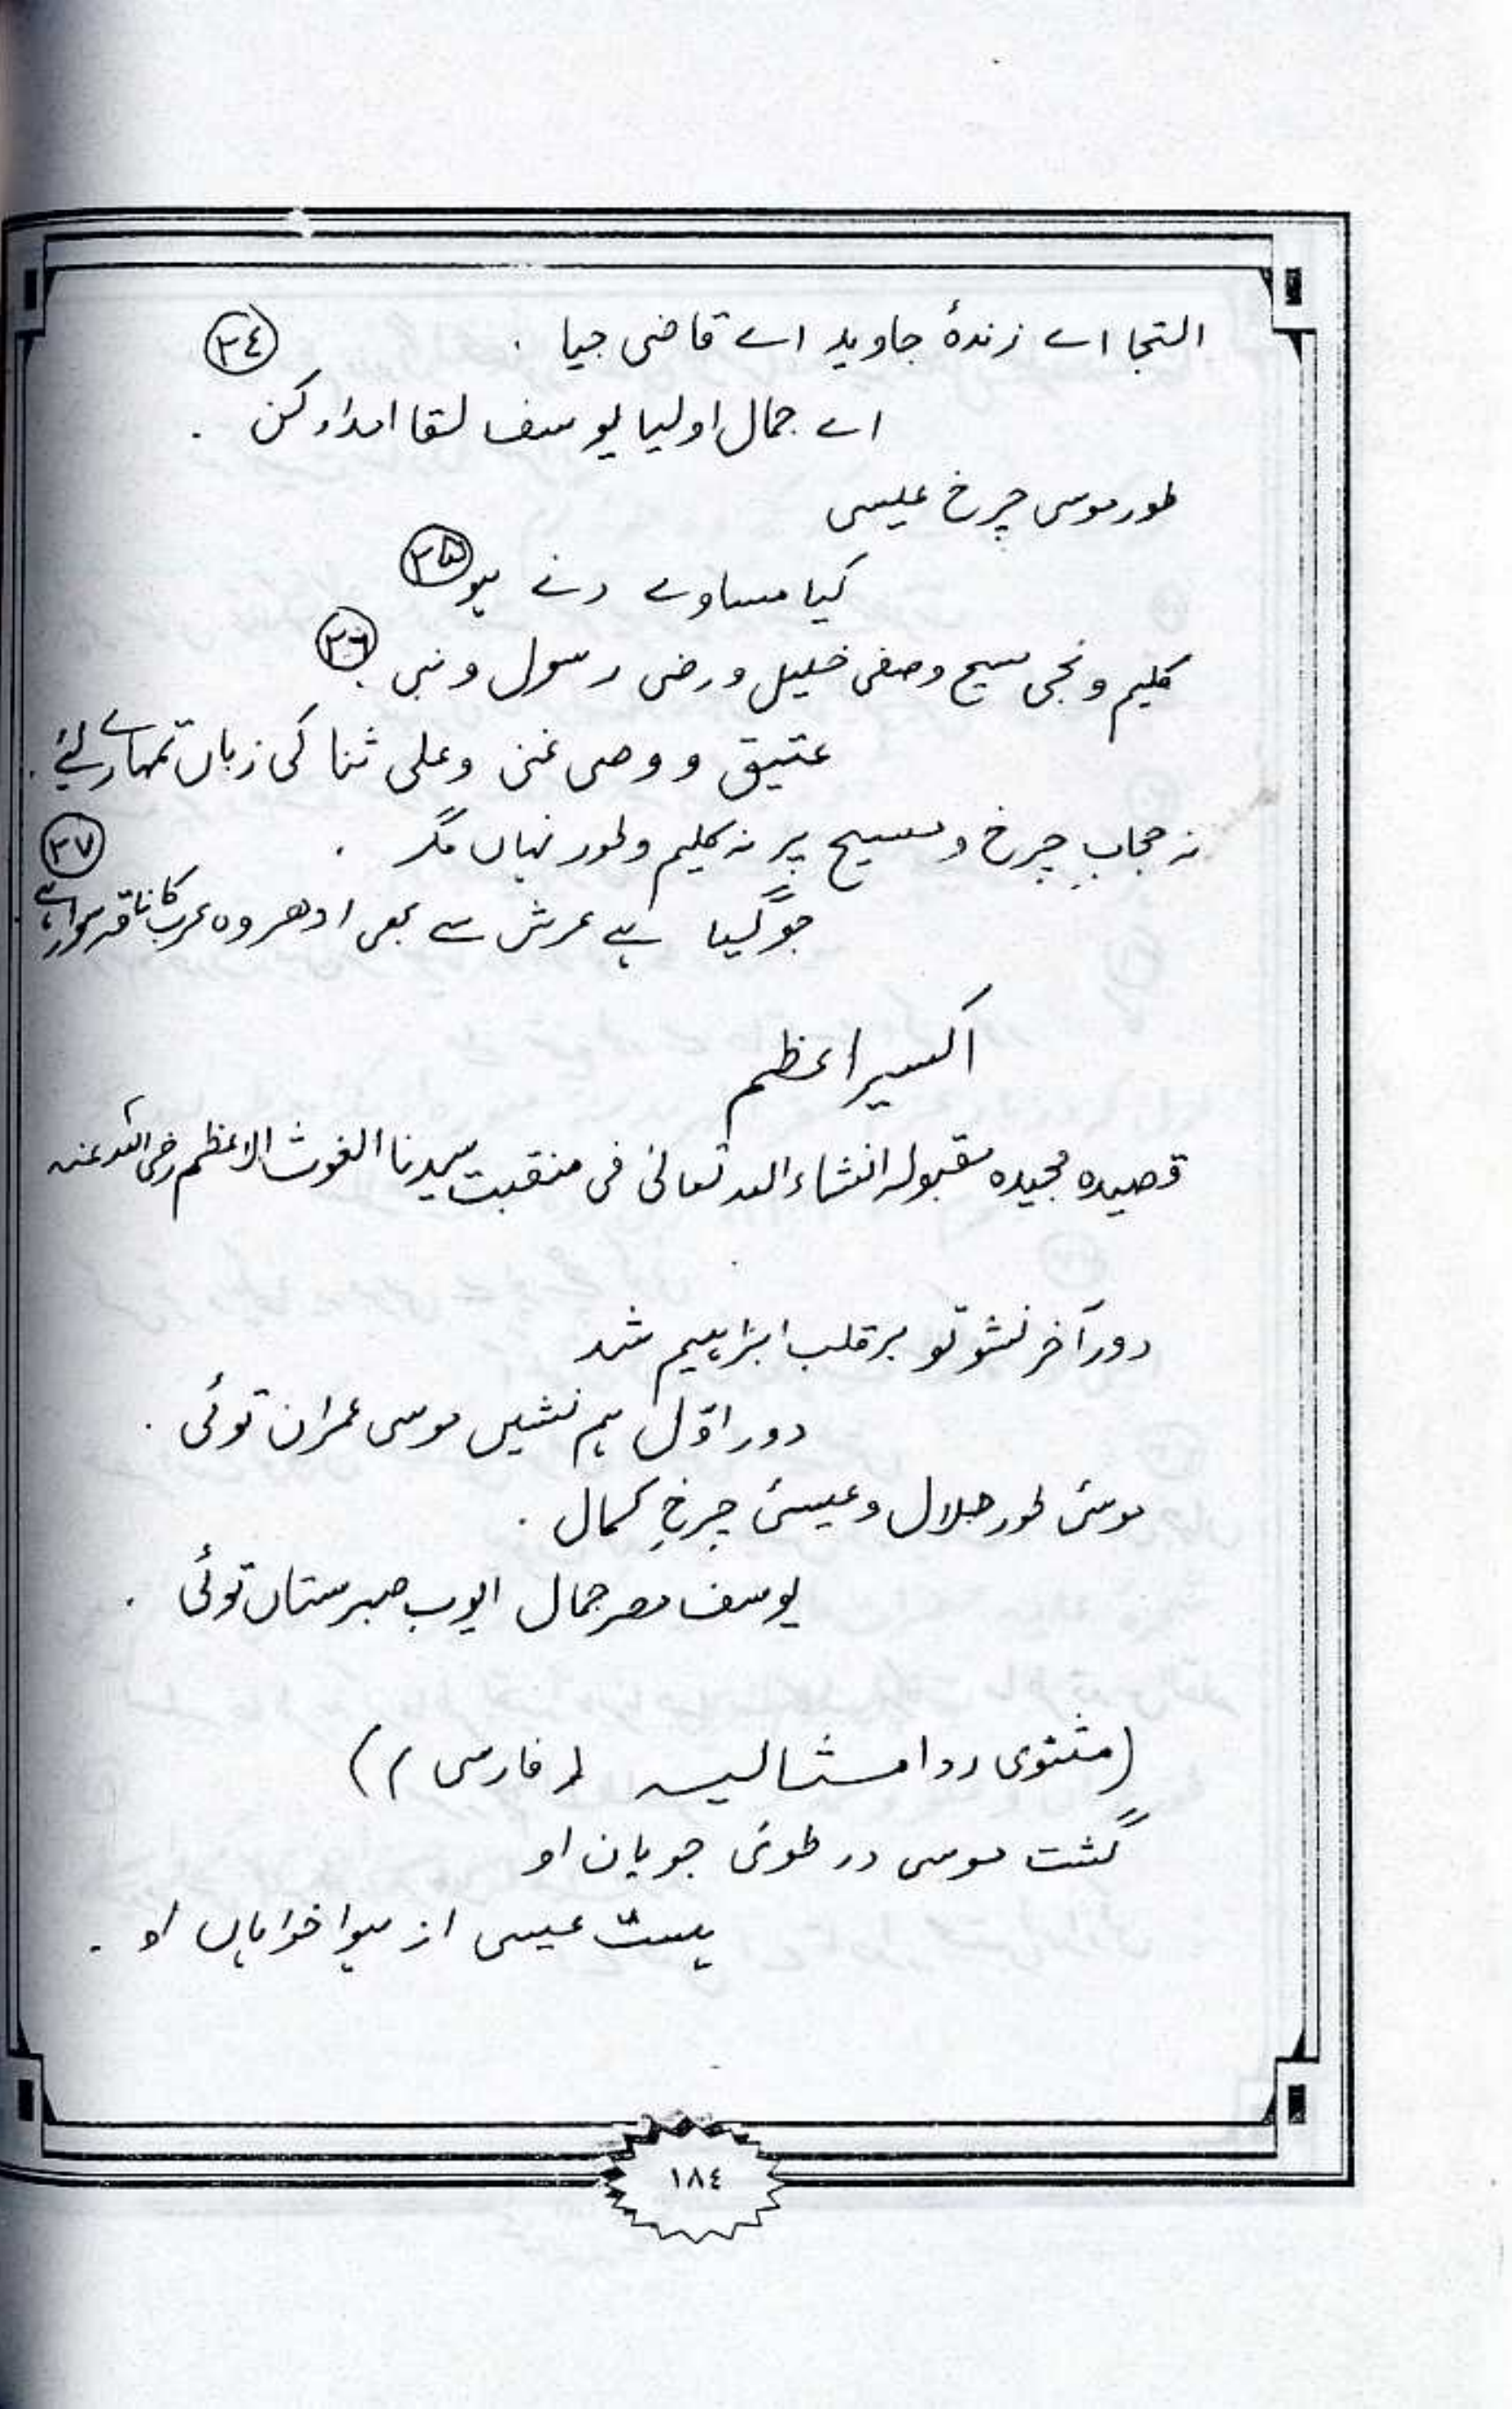 التجا اے زندۂ جاوید اے قاضی جیا . ٣٤
اے جمال اولیا یوسف لقا امداد کن .
طور موسی چرخ عیسی
کیا مساوے دنے ہو ٣۵
کلیم و نجی مسیح و صفی خلیل و رضی رسول و نبی ٣٦
عتیق و وصی غنی و علی ثنا کی زباں تمہارے لئے .
نہ حجابِ چرخ و مسیح پر نہ کلیم و طور نہاں مگر . ٣٧
جو گیا ہے عرش سے بھی ادھر وہ عرب کا ناقہ سوار ہے
اکسیر اعظم
قصیده مجیده مقبولہ انشاء اللہ تعالیٰ فی منقبت سیدنا الغوث الاعظم رضی اللہ عنہ
دور آخر نشو تو بر قلب ابراہیم شد
دور اوّل ہم نشیں موسی عمران توئی .
موسیٰ طور جلال و عیسیٰ چرخِ کمال .
یوسف مصر جمال ایوب صبرستاں توئی .
(مثنوی رد امثالیہ (فارسی))
گشت موسی در طویٰ جویان او
ہست عیسی از ہوا خواہاں او .
١٨٤